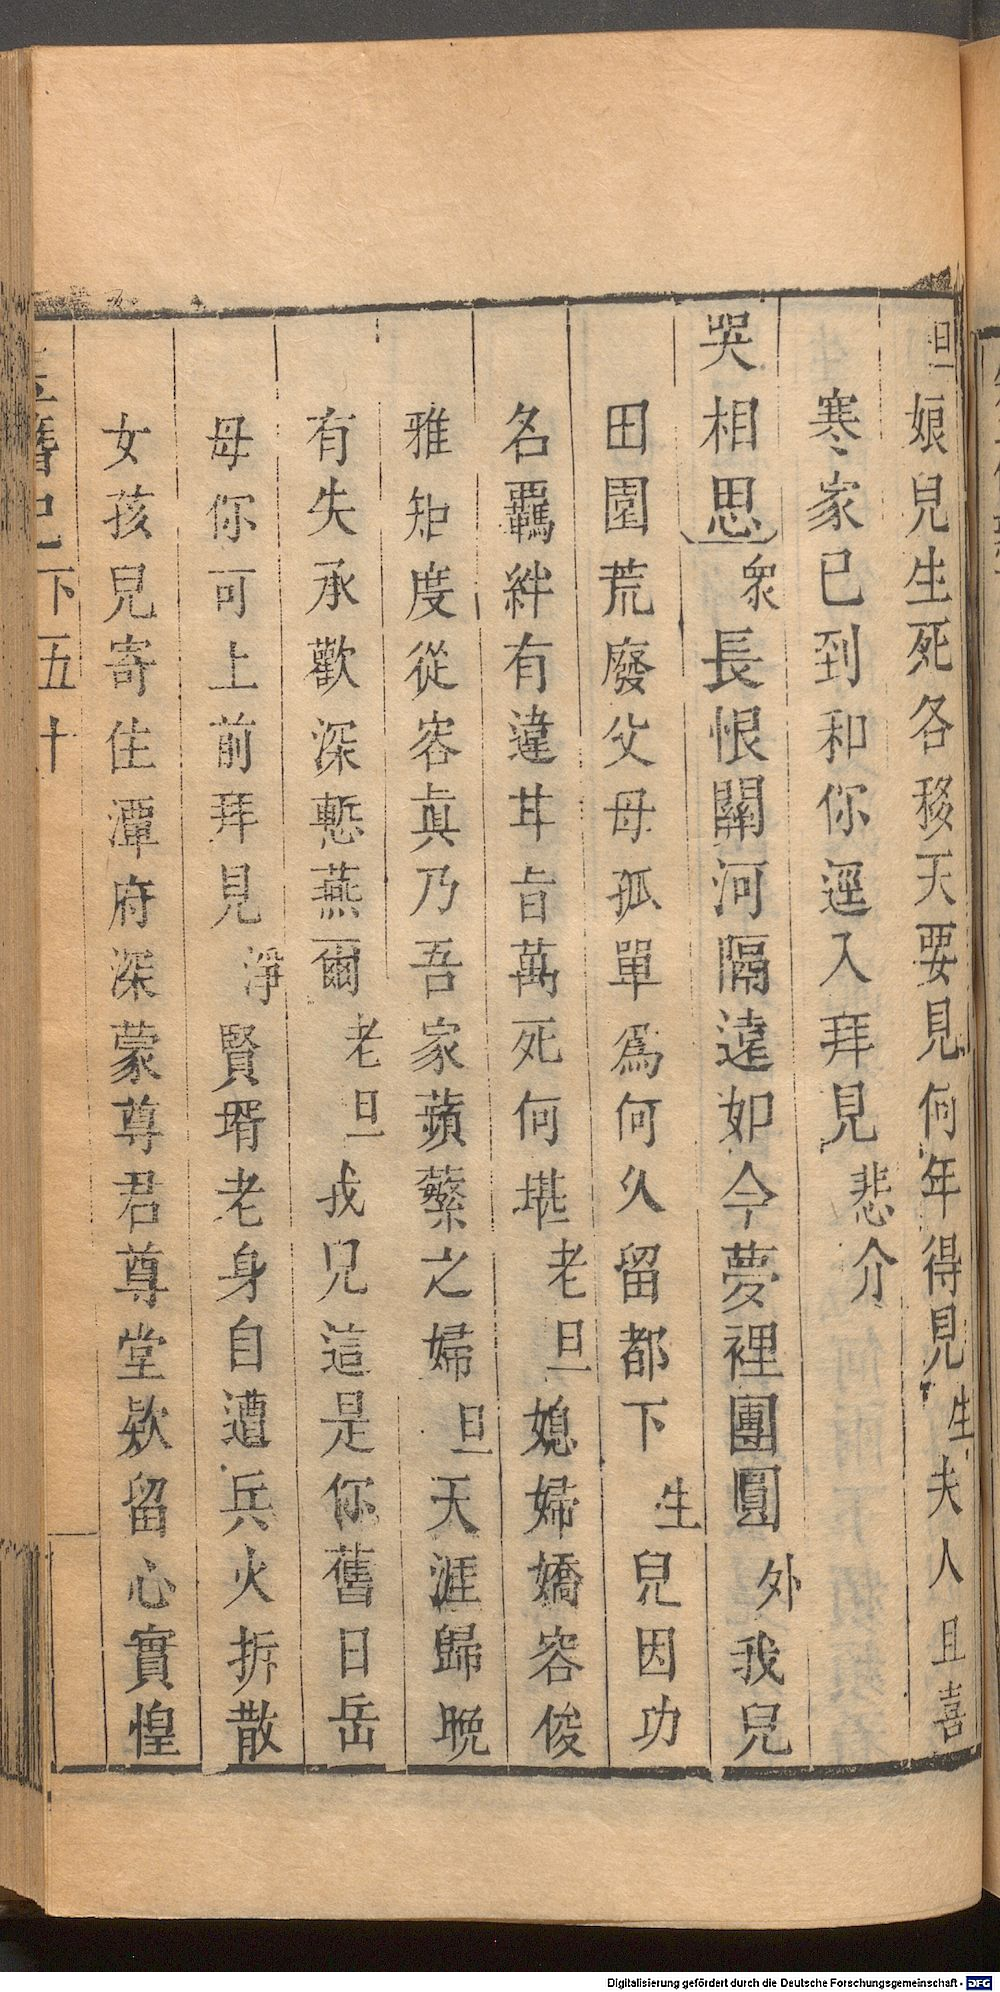 旦娘兒生死各移天要見何年得見生夫人且喜
寒家已到和你逕入拜見悲介
哭相思衆長恨關河隔遠如今夢裡團圓外我兒
田園荒廢父母孤單爲何久留都下生兒因功
名羈絆有違甘旨萬死何堪老旦媳婦嬌容俊
雅矩度從容眞乃吾家蘋蘩之婦旦天涯歸晚
有失承歡深慙燕爾老旦我兒這是你舊日岳
母你可上前拜見淨賢壻老身自遭兵火拆散
女孩兒寄住潭府深蒙尊君尊堂欵留心實惶
簪記下五十
Digitalisierung gefördert durch die Deutsche Forschungsgemeinschaft - DFG